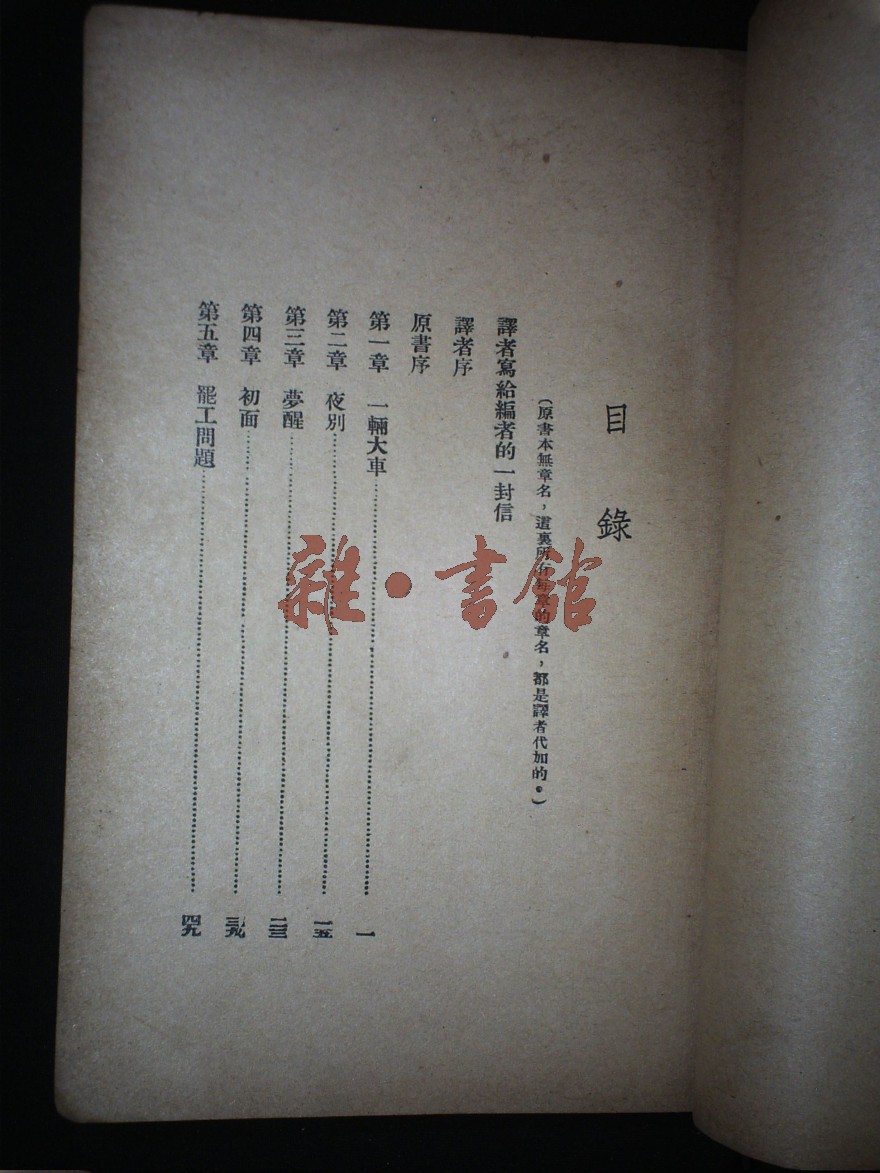 目錄
(原書本無章名，這裏所有每章的章名，都是譯者代加的。)
譯者寫給編者的一封信
譯者序
原書序
第一章 一輛大車……一
第二章 夜別……一五
第三章 夢醒……二三
第四章 初面……三九
第五章 罷工問題……四九
雜·書館